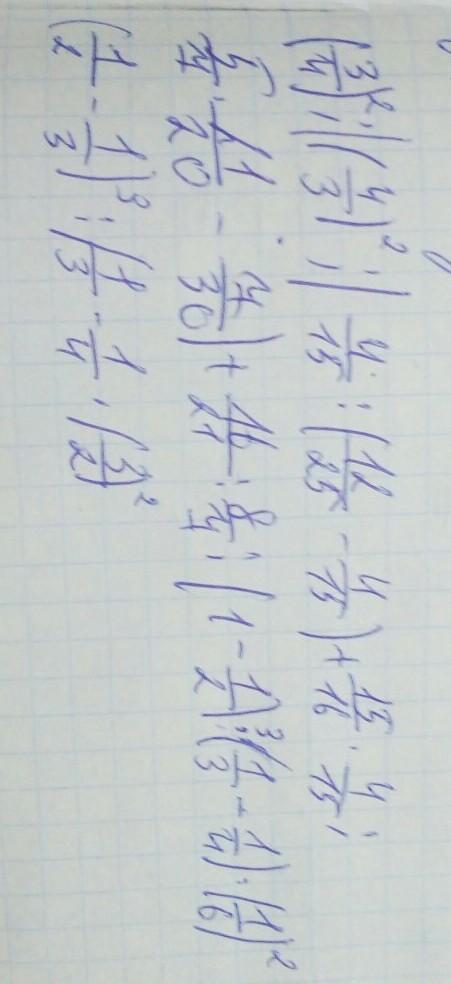 (3/4)²; (4/3)²; 4/15 : (12/25 - 4/15) + 15/16 · 4/15;
5/7 · (11/20 - 4/30) + 16/27 : 8/7; (1 - 1/2)³ : (1/3 - 1/4) · (1/6)²
(1/2 - 1/3)³ : (1/3 - 1/4 · (3/2)²